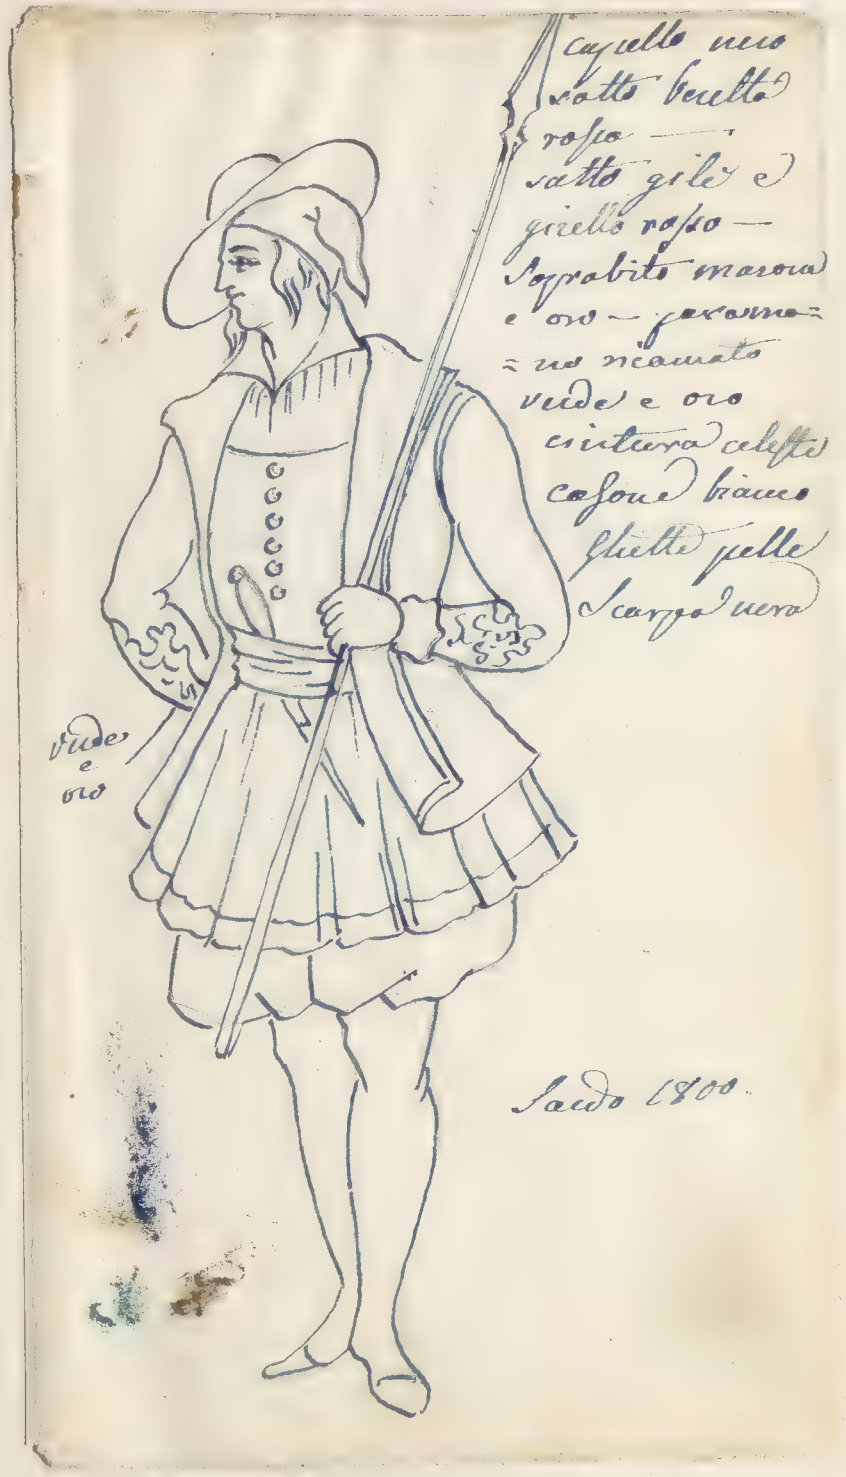 capello nero
sotto beretta
roſso —
sotto gilè e
girello roſso —
Soprabito marona
e oro — paramo=
= no ricamato
verde e oro
cintura celeste
casone bianco
Ghette pelle
Scarpa nera
verde
e
oro
Sardo 1800.